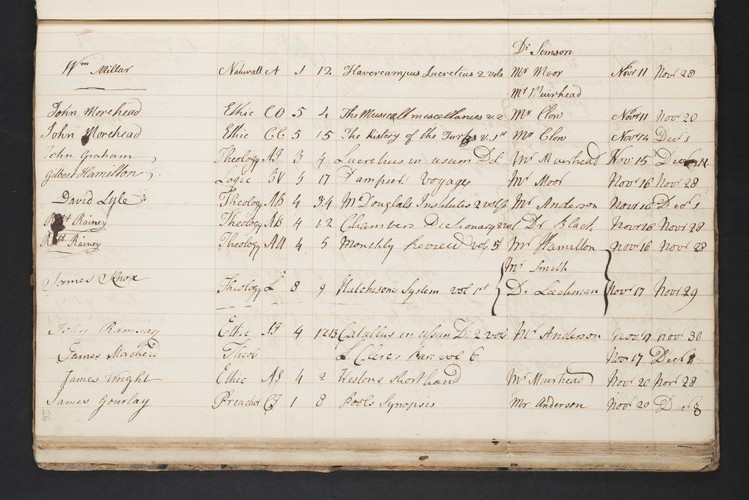 Dr Simson
Wm Millar Naturall A 1 12 Havercampus Lucretius 2 vols Mr Moor Novr 11 Novr 28
Mr Muirhead
John Morehead Ethic CO 5 4 The Musicall miscellanies v 2 Mr Clow Novr 11 Novr 20
John Morehead Ethic CC 5 15 The history of the Turks v. 1st Mr Clow Novr 14 Decr 1
John Graham Theology 3 4 Lucretius in usum Del Mr Muirhead Novr 15 Decr
Gilbert Hamilton Logic 3 17 Dampiers Voyages Mr Moor Novr 16 Novr 28
David Lyle Theology 4 Mc Douglals Institutes 2 vol Mr Anderson Novr 16 Decr 1
Robt Rainey Theology 4 12 Chambers Dictionary 2 vol Dr Black Novr 16 Novr 28
Robt Rainey Theology 4 5 Monthly Review vol 5 Mr Hamilton Novr 16 Novr 28
Mr Smith
James Knox Theology 8 9 Hutchesons System vol 1st Dr Leechman Novr 17 Novr 29
John Ramsay Ethic 4 12 13 Catullus in usum D. 2 vol Mr Anderson Novr 17 Novr 30
James Theol L Clercs vol. 6 Novr 17 Decr
James Wright Ethic 4 2 Westons shorthand Mr Muirhead Novr 20 Novr 28
James Gourlay Preacher 1 8 Pools Synopsis Mr Anderson Novr 20 Decr 8